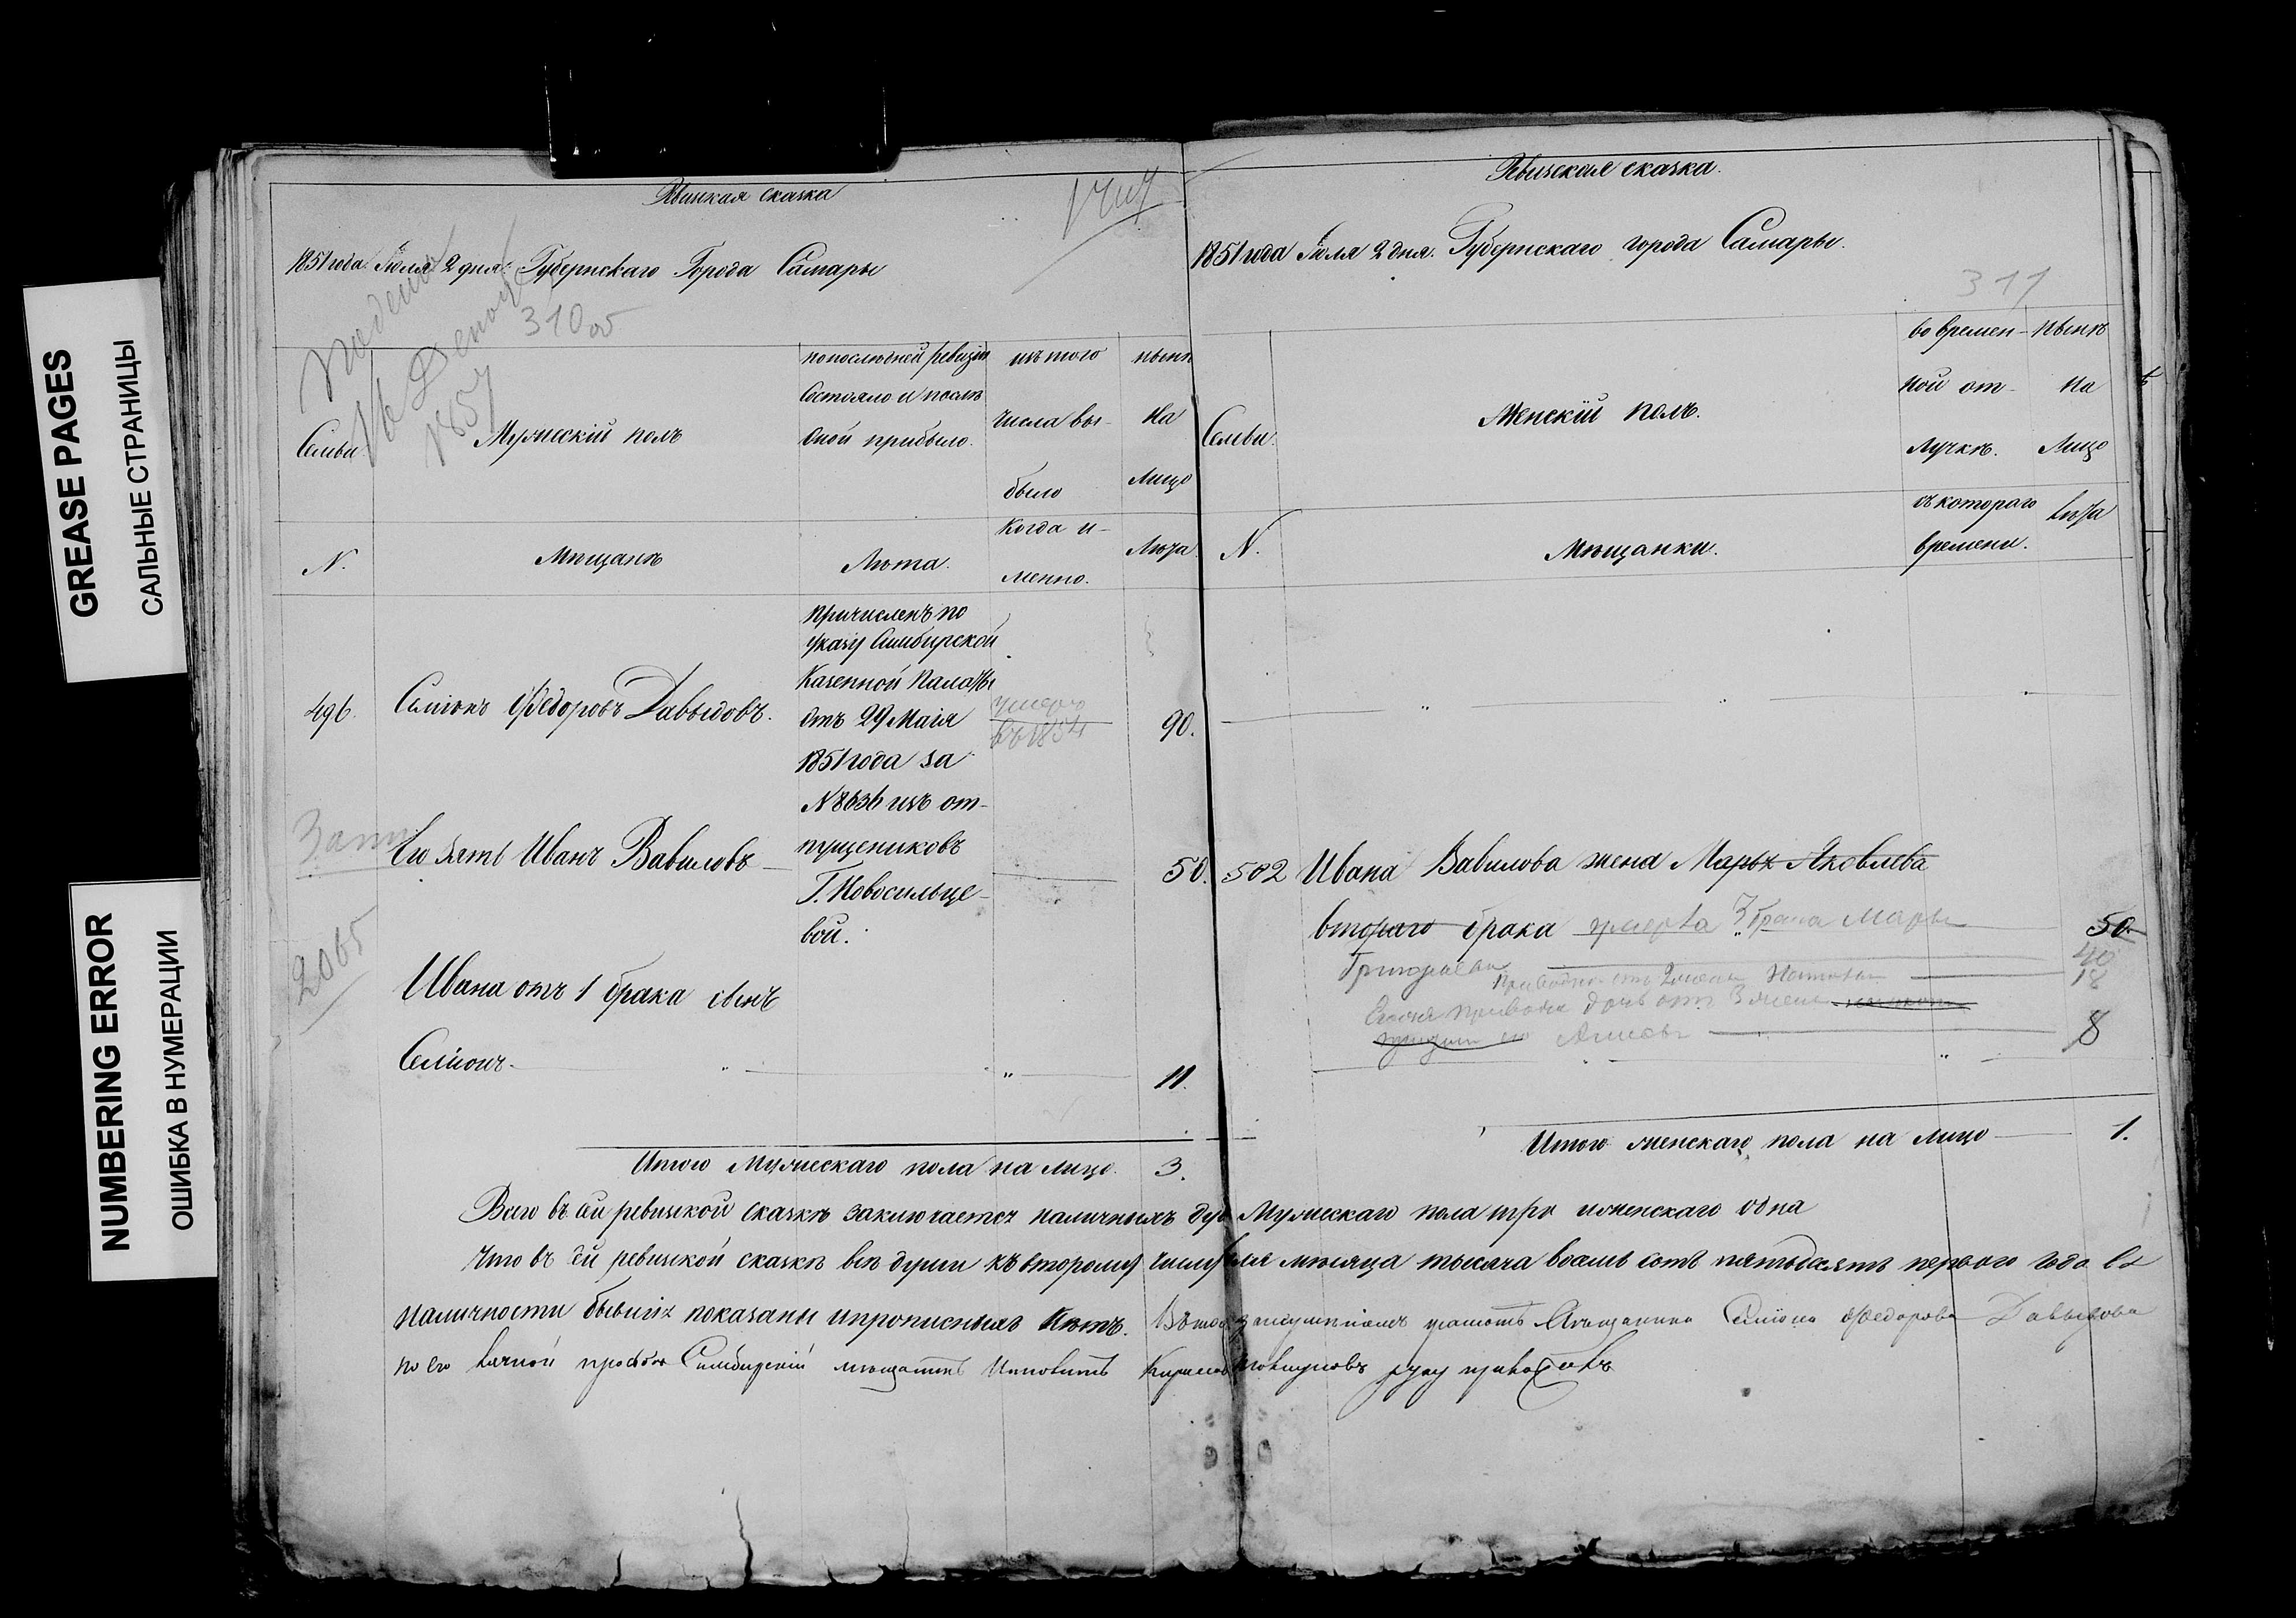 GREASE PAGES
САЛЬНЫЕ СТРАНИЦЫ
NUMBERING ERROR
ОШИБКА В НУМЕРАЦИИ
Ревизская сказка
1851 года Іюля 2 дня. Губернскаго Города Самары
310 об
1857
Семьи
Мужескій полъ
по послѣдней ревизіи
состояло и послѣ
оной прибыло.
изъ того
числа вы-
было
нынѣ
на
лицо
N.
Мѣщанѣ
Лѣта.
Когда и-
менно.
Лѣта.
496.
Семіонъ Ѳедоровъ Давыдовъ.
причисленъ по
указу Симбирской
Казенной Палаты
отъ 29 Маія
1851 года за
N 8636 изъ от-
пущениковъ
Г. Новосильце-
вой.
умеръ
въ 1854
90.
Его зять Иванъ Вавиловъ
50.
2065
Ивана отъ 1 брака сынъ
Семіонъ.
11.
Итого Мужескаго пола на лицо. 3.
Ревизская сказка.
1851 года Іюля 2 дня. Губернскаго города Самары.
311
Семьи.
Женскій полъ.
во времен-
ной от-
лучкѣ.
нынѣ
на
лицо
N.
Мѣщанки.
съ котораго
времени.
Лѣта
502 Ивана Вавилова жена Марья Яковлева
втораго брака умерла 3 брака Марья 50
Григорьева 40
18
дочь отъ 3 жены
8
Итого женскаго пола на лицо 1.
Всего въ сей ревизской сказкѣ заключается наличныхъ душ Мужескаго пола три и женскаго одна
Что въ сей ревизской сказкѣ всѣ души къ второму числу Іюля мѣсяца тысяча восемь сотъ пятьдесятъ перваго года въ
наличности бывшія показаны и прописныхъ нѣтъ. Въ томъ за неумѣніемъ грамотѣ Мѣщанина Семіона Ѳедорова Давыдова
по его личной прозбѣ Симбирскій мѣщанинъ руку приложилъ